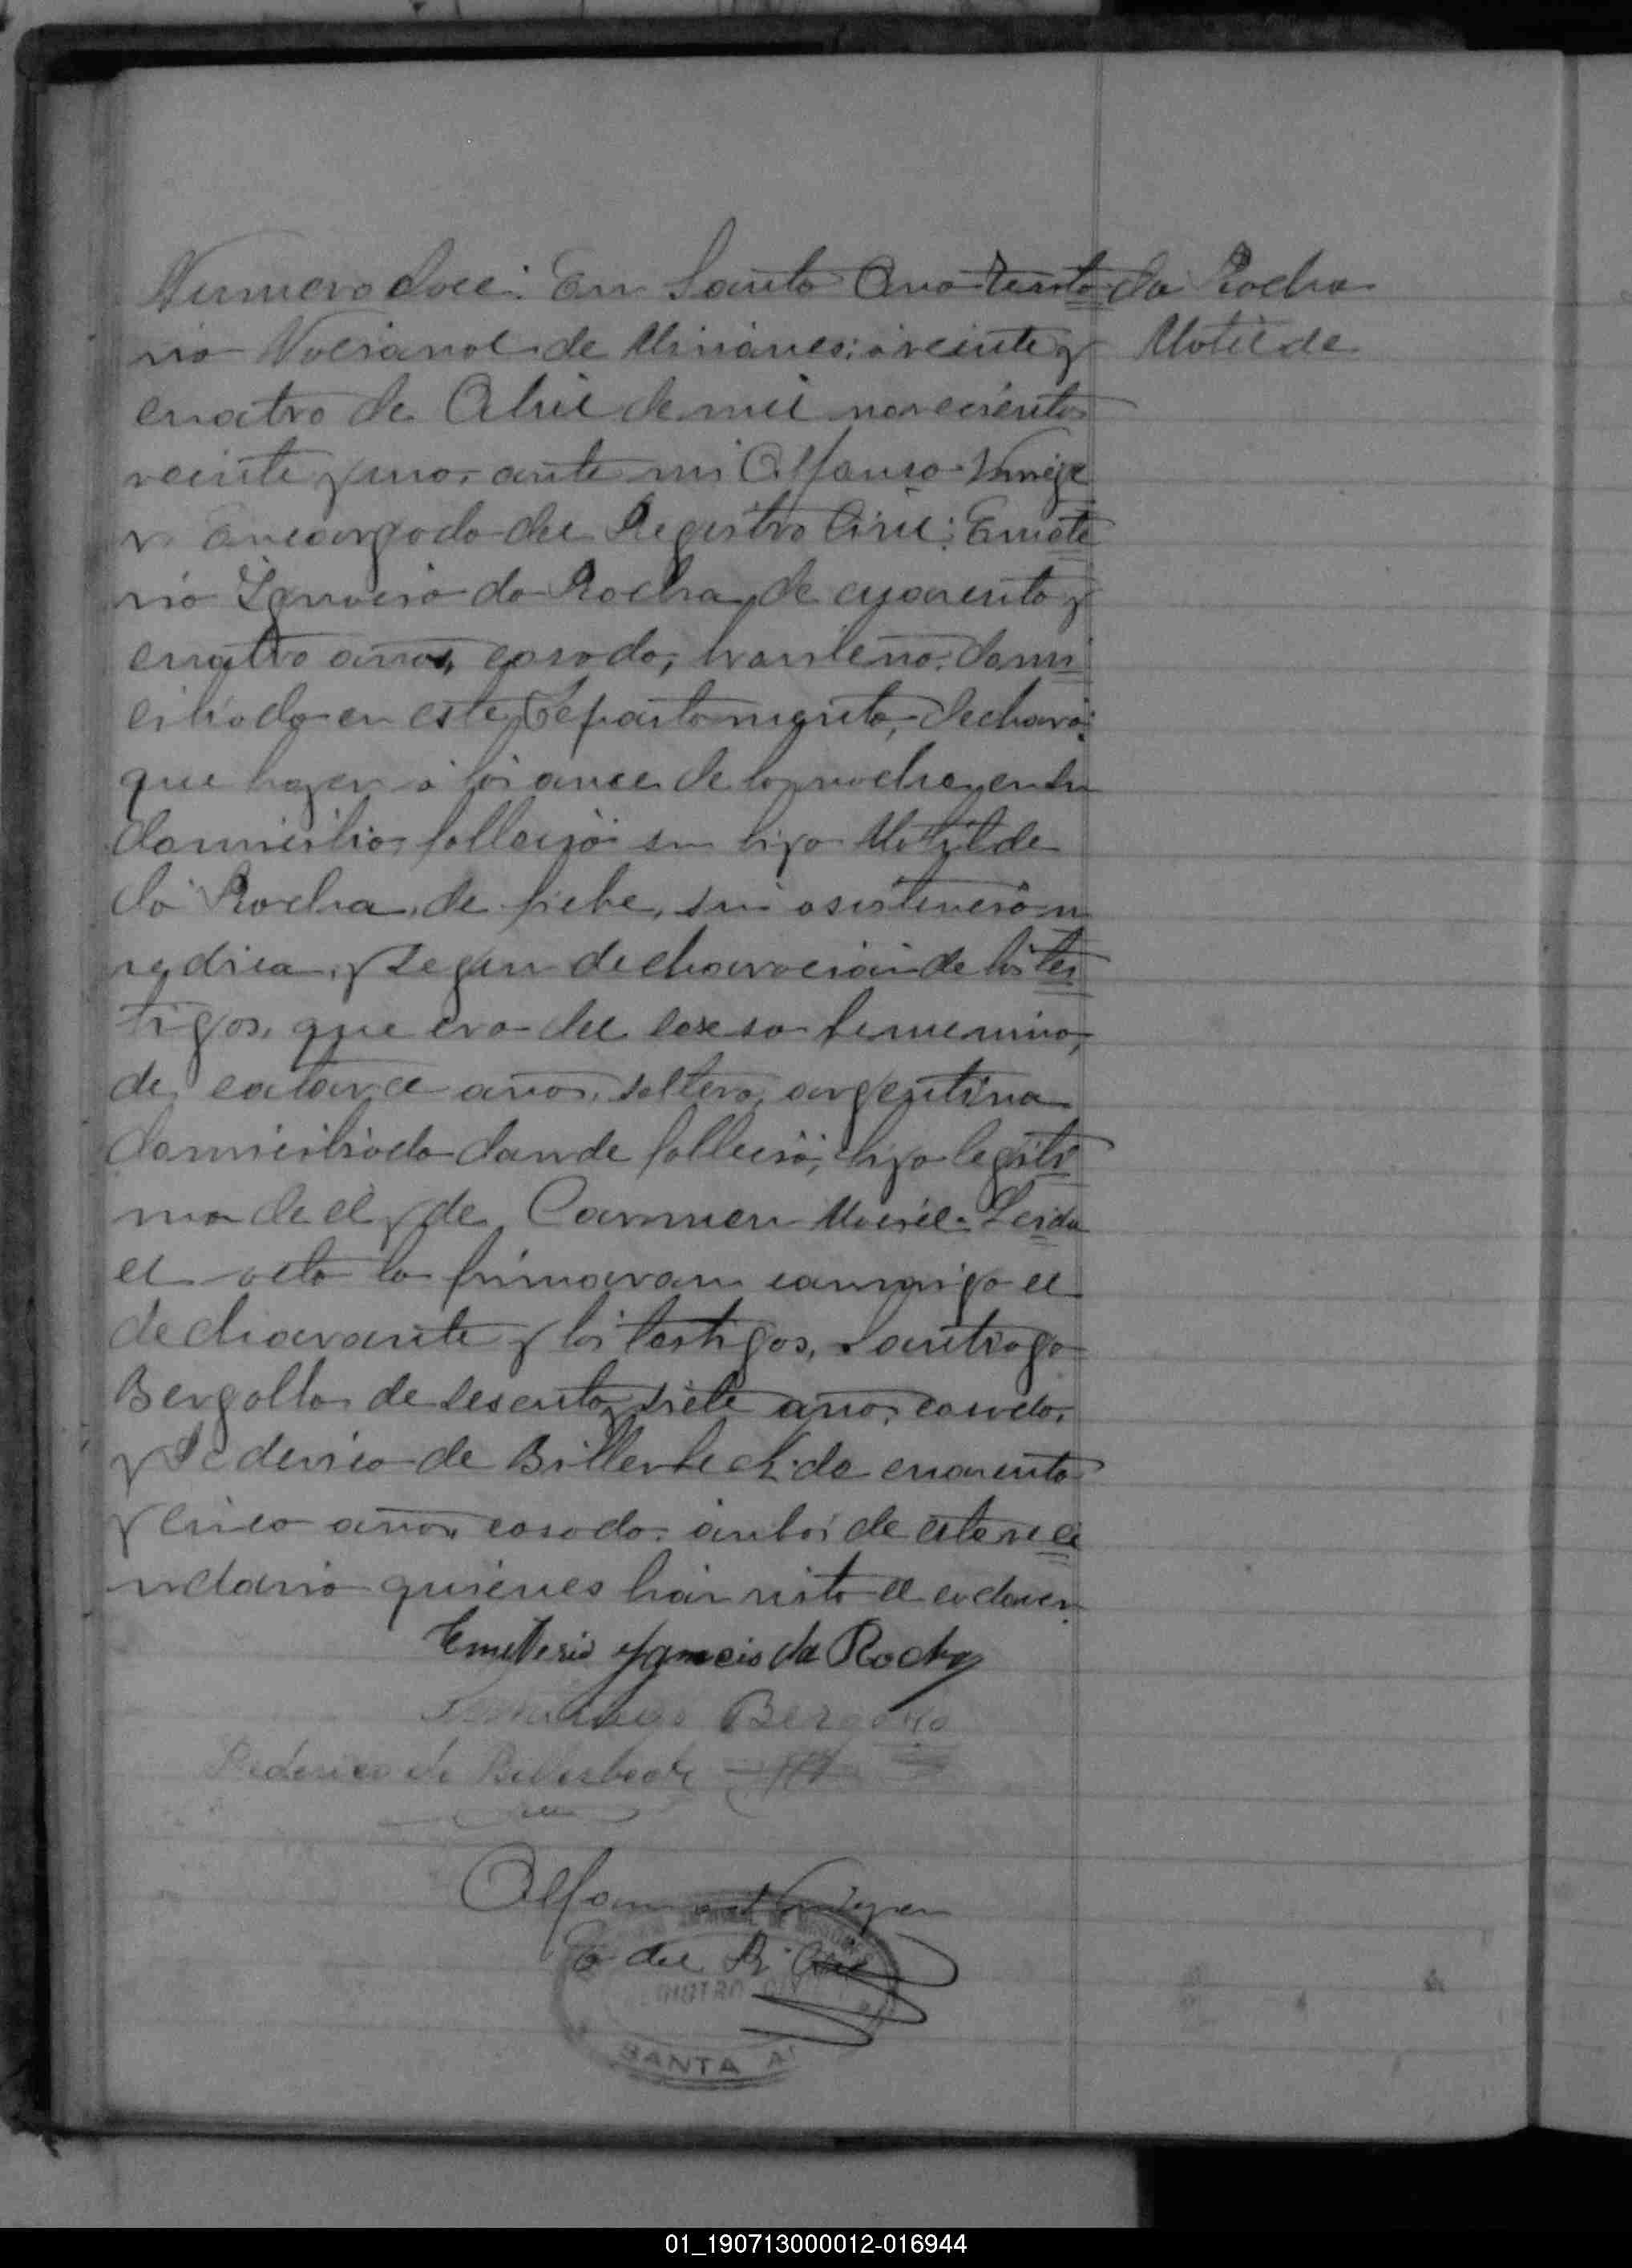 Numero doce: En Santa Ana territo
rio Nacional de Misiones: a veinte y
cuatro de Abril de mil novecientos
veinte y uno, ante mi Alfonso
Encargado del Registro Civil: Emete
rio Ignacio da Rocha, de cuarenta y
cuatro años, casado, brasileño, domi
ciliado en este Departamento, declaró:
que hayer á las once de la noche, en su
domicilio, falleció su hija Matilde
da Rocha, de fiebe, sin asistencia m
edica, y segun declaracion de los tes
tigos, que era del sexso femenino,
de catorce años, soltera, argentina
domiciliada donde falleció, hija legiti
ma de el y de Carmen Leida
el acta la firmaran conmigo el
declarante y los testigos, Santiago
Bergallo, de sesenta y siete años, casado,
y Federico de Billerbeck, de cuarenta
y cinco años, casado, ambos de este veci
ndario quienes han visto el cadaver.
da Rocha
Matilde
Emetterio Ignacio da Rocha
Santiago Bergallo
Federico de Billerbeck
Alfonso
E del R. Civil
SANTA A
01_190713000012-016944